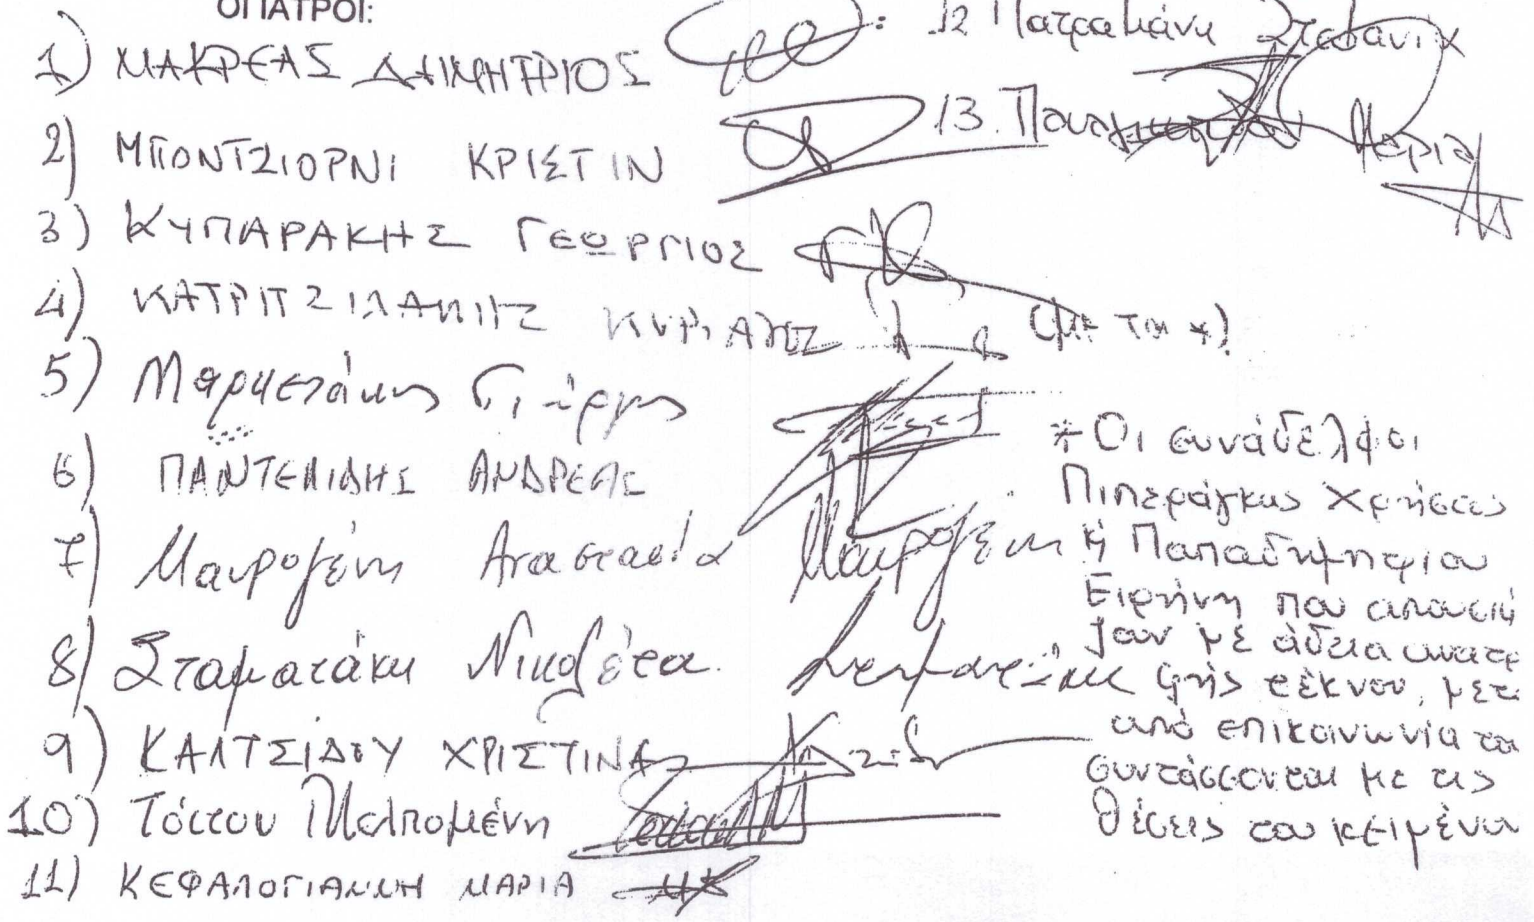 ΟΙ ΙΑΤΡΟΙ:
1) ΜΑΚΡΕΑΣ ΔΗΜΗΤΡΙΟΣ
2) ΜΠΟΝΤΖΙΟΡΝΙ ΚΡΙΣΤΙΝ
3) ΚΥΠΑΡΑΚΗΣ ΓΕΩΡΓΙΟΣ
4) (με το *)
5) Γιώργης
6) ΠΑΝΤΕΛΙΔΗΣ ΑΝΔΡΕΑΣ
7) Μαυρογένη Αναστασία Μαυρογένη
8) Σταματάκη Νικολέτα Σταματάκη
9) ΚΑΛΤΣΙΔΟΥ ΧΡΙΣΤΙΝΑ
10) Τόττου Μελπομένη
11) ΚΕΦΑΛΟΓΙΑΝΝΗ ΜΑΡΙΑ
12 Πατραμάνη
13. Μαρία
* Οι συνάδελφοι
Πιπεράγκας Χρήστος
ή Παπαδημητρίου
Ειρήνη που απουσιά
ζουν με άδεια ανατρ
οφής τέκνου, μετά
από επικοινωνία
συντάσσονται με τις
θέσεις του κειμένου